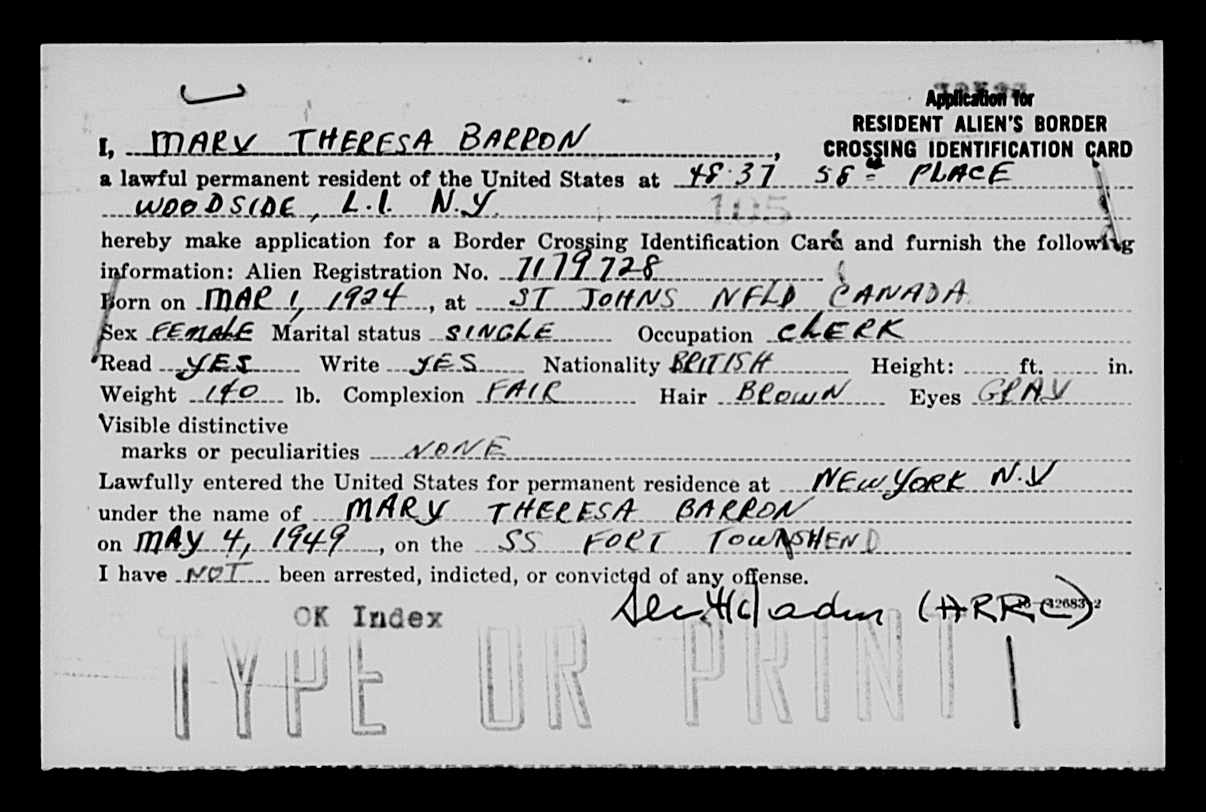 Application for
RESIDENT ALIEN'S BORDER
CROSSING IDENTIFICATION CARD
I, MARY THERESA BARRON,
a lawful permanent resident of the United States at 48-37 58th PLACE
WOODSIDE, L.I. N.Y.
105
hereby make application for a Border Crossing Identification Card and furnish the following
information: Alien Registration No. 7179728
Born on MAR 1, 1924, at ST JOHNS NFLD CANADA
Sex FEMALE Marital status SINGLE Occupation CLERK
Read YES Write YES Nationality BRITISH Height: ft. in.
Weight 140 lb. Complexion FAIR Hair BROWN Eyes GRAY
Visible distinctive
marks or peculiarities NONE
Lawfully entered the United States for permanent residence at NEW YORK N.Y
under the name of MARY THERESA BARRON
on MAY 4, 1949, on the SS FORT TOWNSHEND
I have NOT been arrested, indicted, or convicted of any offense.
OK Index
TYPE OR PRINT